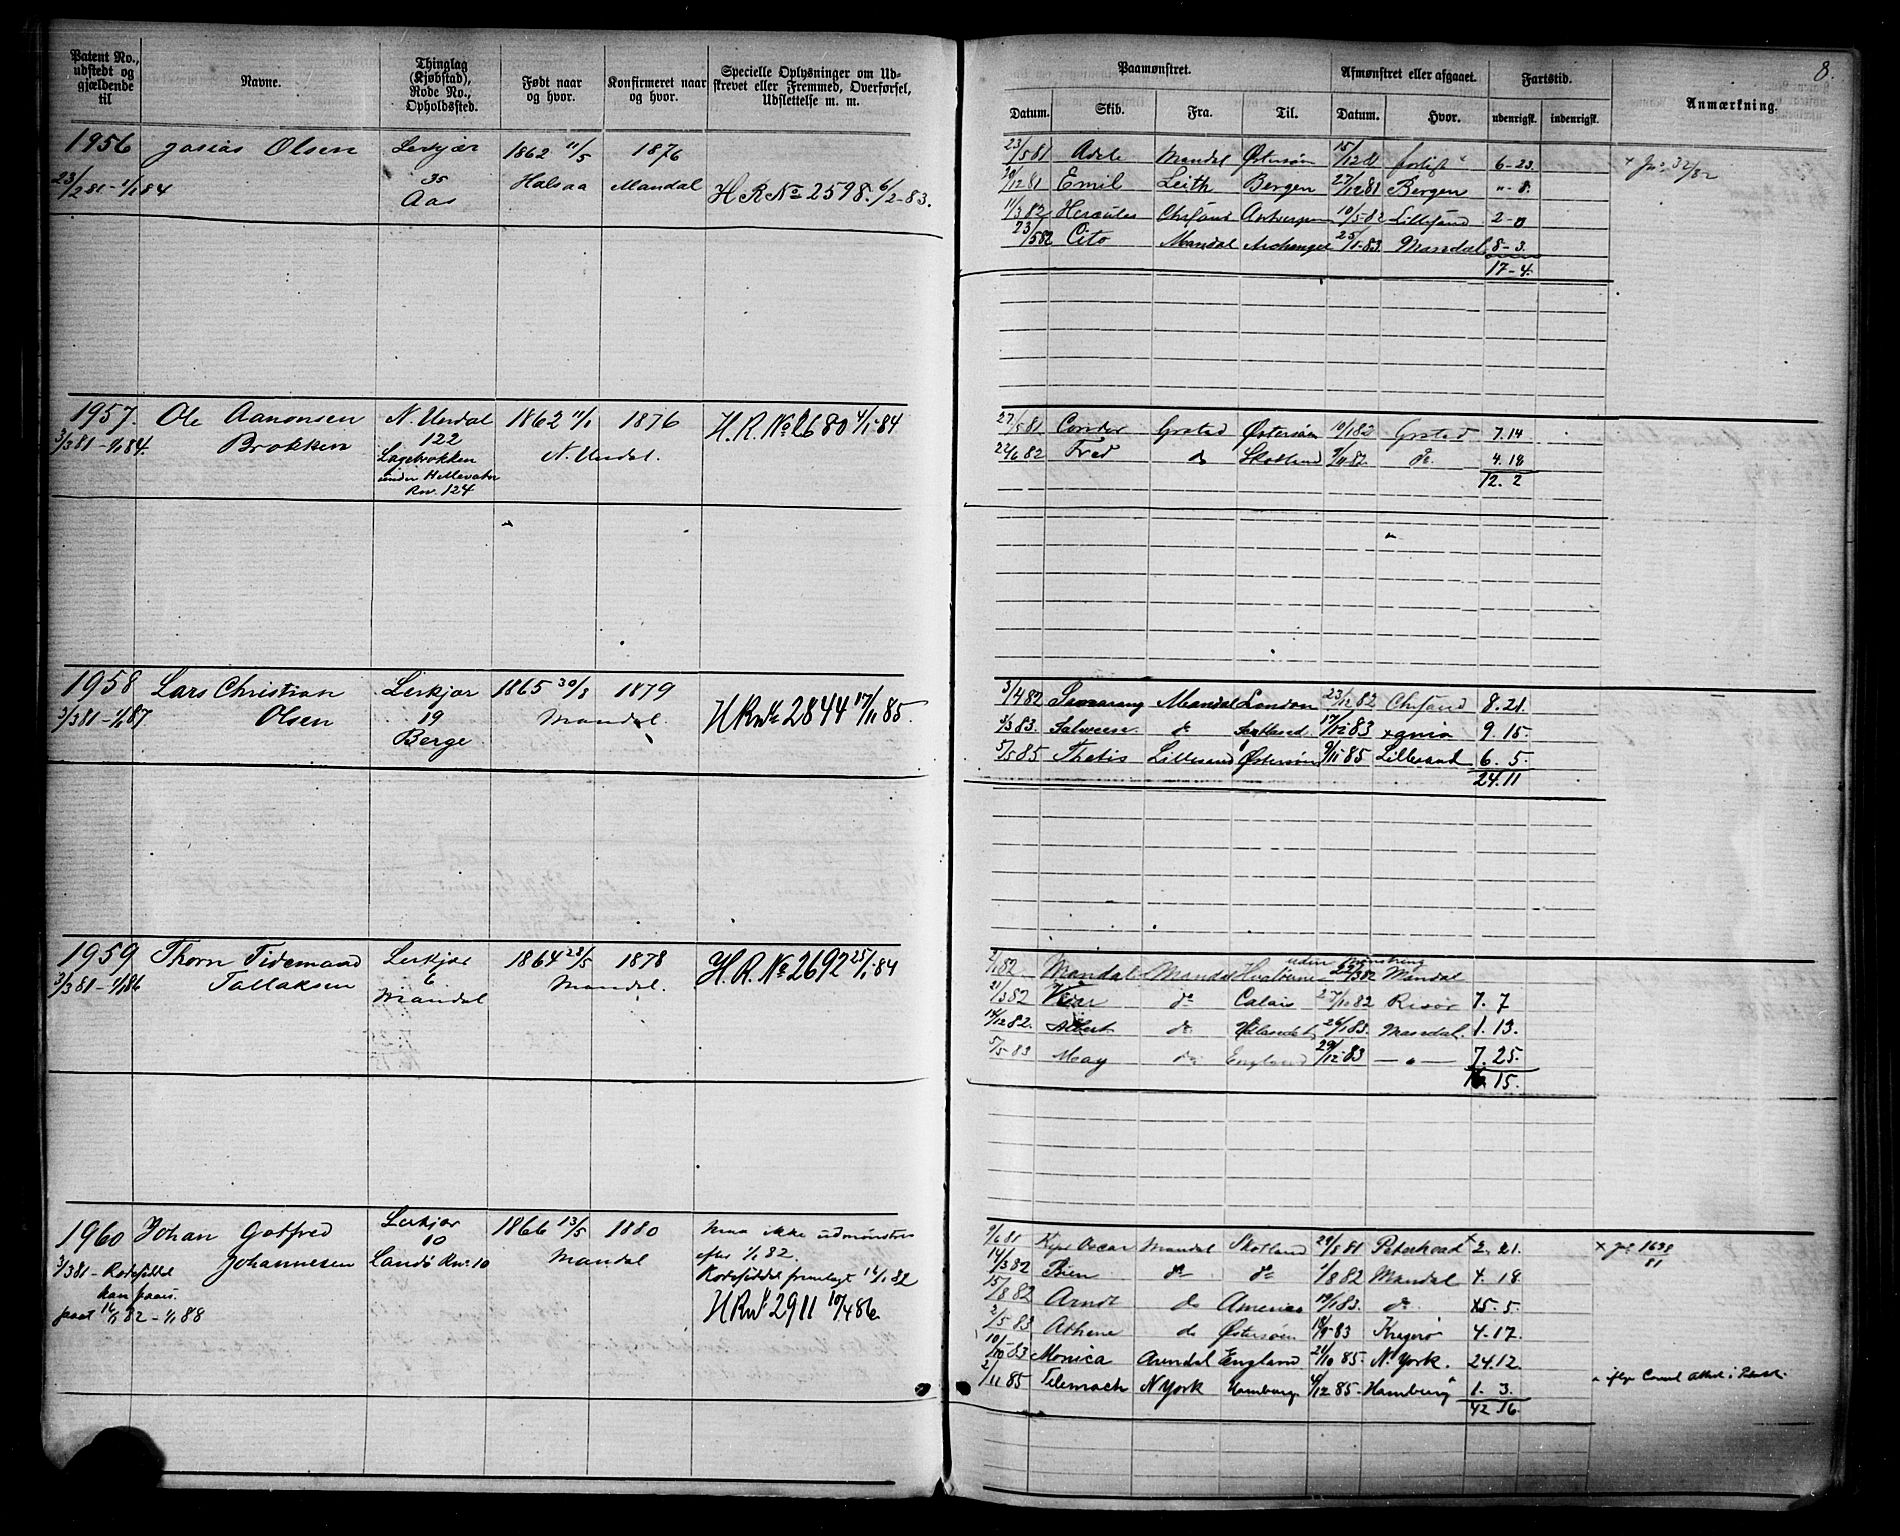 8.
Patent No., udstedt og gjældende til
Navne.
Thinglag (Kjøbstad), Rode No., Opholdssted.
Født naar og hvor.
Konfirmeret naar og hvor.
Specielle Oplysninger om Udskrevet eller Fremmed, Overførsel, Udslettelse m. m.
Paamønstret.
Afmønstret eller afgaaet.
Fartstid.
Anmærkning.
Datum. Skib. Fra. Til. Datum. Hvor. udenrigsk. indenrigsk.
1956 Josias Olsen Leikjær 1862 11/5 1876
23/2 81 - 1/1 84 35 Halsaa Mandal H R No 2598. 6/2-83.
Aas
23/5 81 Adele Mandal Østersøn 15/12 81 forligt 6-23. + Jr. 32/82
20/12 81 Emil Leith Bergen 27/12 81 Bergen "-8.
11/3 82 Hercules Chrsand Antwerpen 10/5-82 Lillesand 2-0
23/5 82 Cito Mandal Archangel 25/1-83. Mandal 8-3.
17-4.
1957. Ole Aanonsen N. Undal 1862 11/1 1876 H.R. No 2680 4/1-84
3/3 81 - 1/1 84. Brokken 122 N. Undal.
Lagebrokken
under Hellevatn
Rn. 124
27/5 81 Condor Grstad Østersøn 10/1 82 Grstad 7.14
22/6 82 Fred do Skotland 9/11 82. do. 4.18
12. 2
1958 Lars Christian Leikjær 1865 30/3 1879 H R No 2844 17/11 85.
3/3 81 - 1/1 87 Olsen 19 Mandal.
Berge
3/4 82 Samarang Mandal London 23/12 82 Chrsand 8.21.
3/3 83. do 17/12 83 xania 9.15.
5/5 85 Thetis Lillesand Østersøn 9/11 85 Lillesand 6. 5.
24.11
1959 Thorn Tidemand Leikjær 1864 28/5 1878 H.R. No 2692 25/1-84
3/3 81 - 1/1 86 Tallaksen 6 Mandal.
Mandal
uden mønstring
2/1 82. Mandal Mandal 22/3 82 Mandal
21/3 82 do Calais 27/11 82 Risør 7. 7
14/12 82. Albert do 26/1 83. Mandal. 1.13.
5/5 83 May do England 29/12 83 — " — 7.25.
16.15.
1960 Johan Gotfred Leikjær 1866 13/5 1880 maa ikke udmønstres
3/3 81 - Rodesiddel Johannesen 10 Mandal efter 1/1 82.
Landø Rn. 10 Rodesiddel fremlagt 14/1 82
paat 14/1 82 - 1/1 88 H R No 2911 10/4 86.
9/6 81 Oscar Mandal Skotland 29/8 81 Peterhead x 2. 21. x Jr. 1638/81
14/3 82 Bien do do 1/8 82 Mandal 4. 18.
15/8 82 Arndt do America 19/1 83. do. x5. 5.
2/5 83 Athene do Østersøen 18/9-83 Kragerø 4-17.
10/10-83 Monica Arendal England 21/10 85. N. York. 24.12.
2/11 85 Telemach N York Hamburg 4/12 85. Hamburg 1. 3.
42 16.